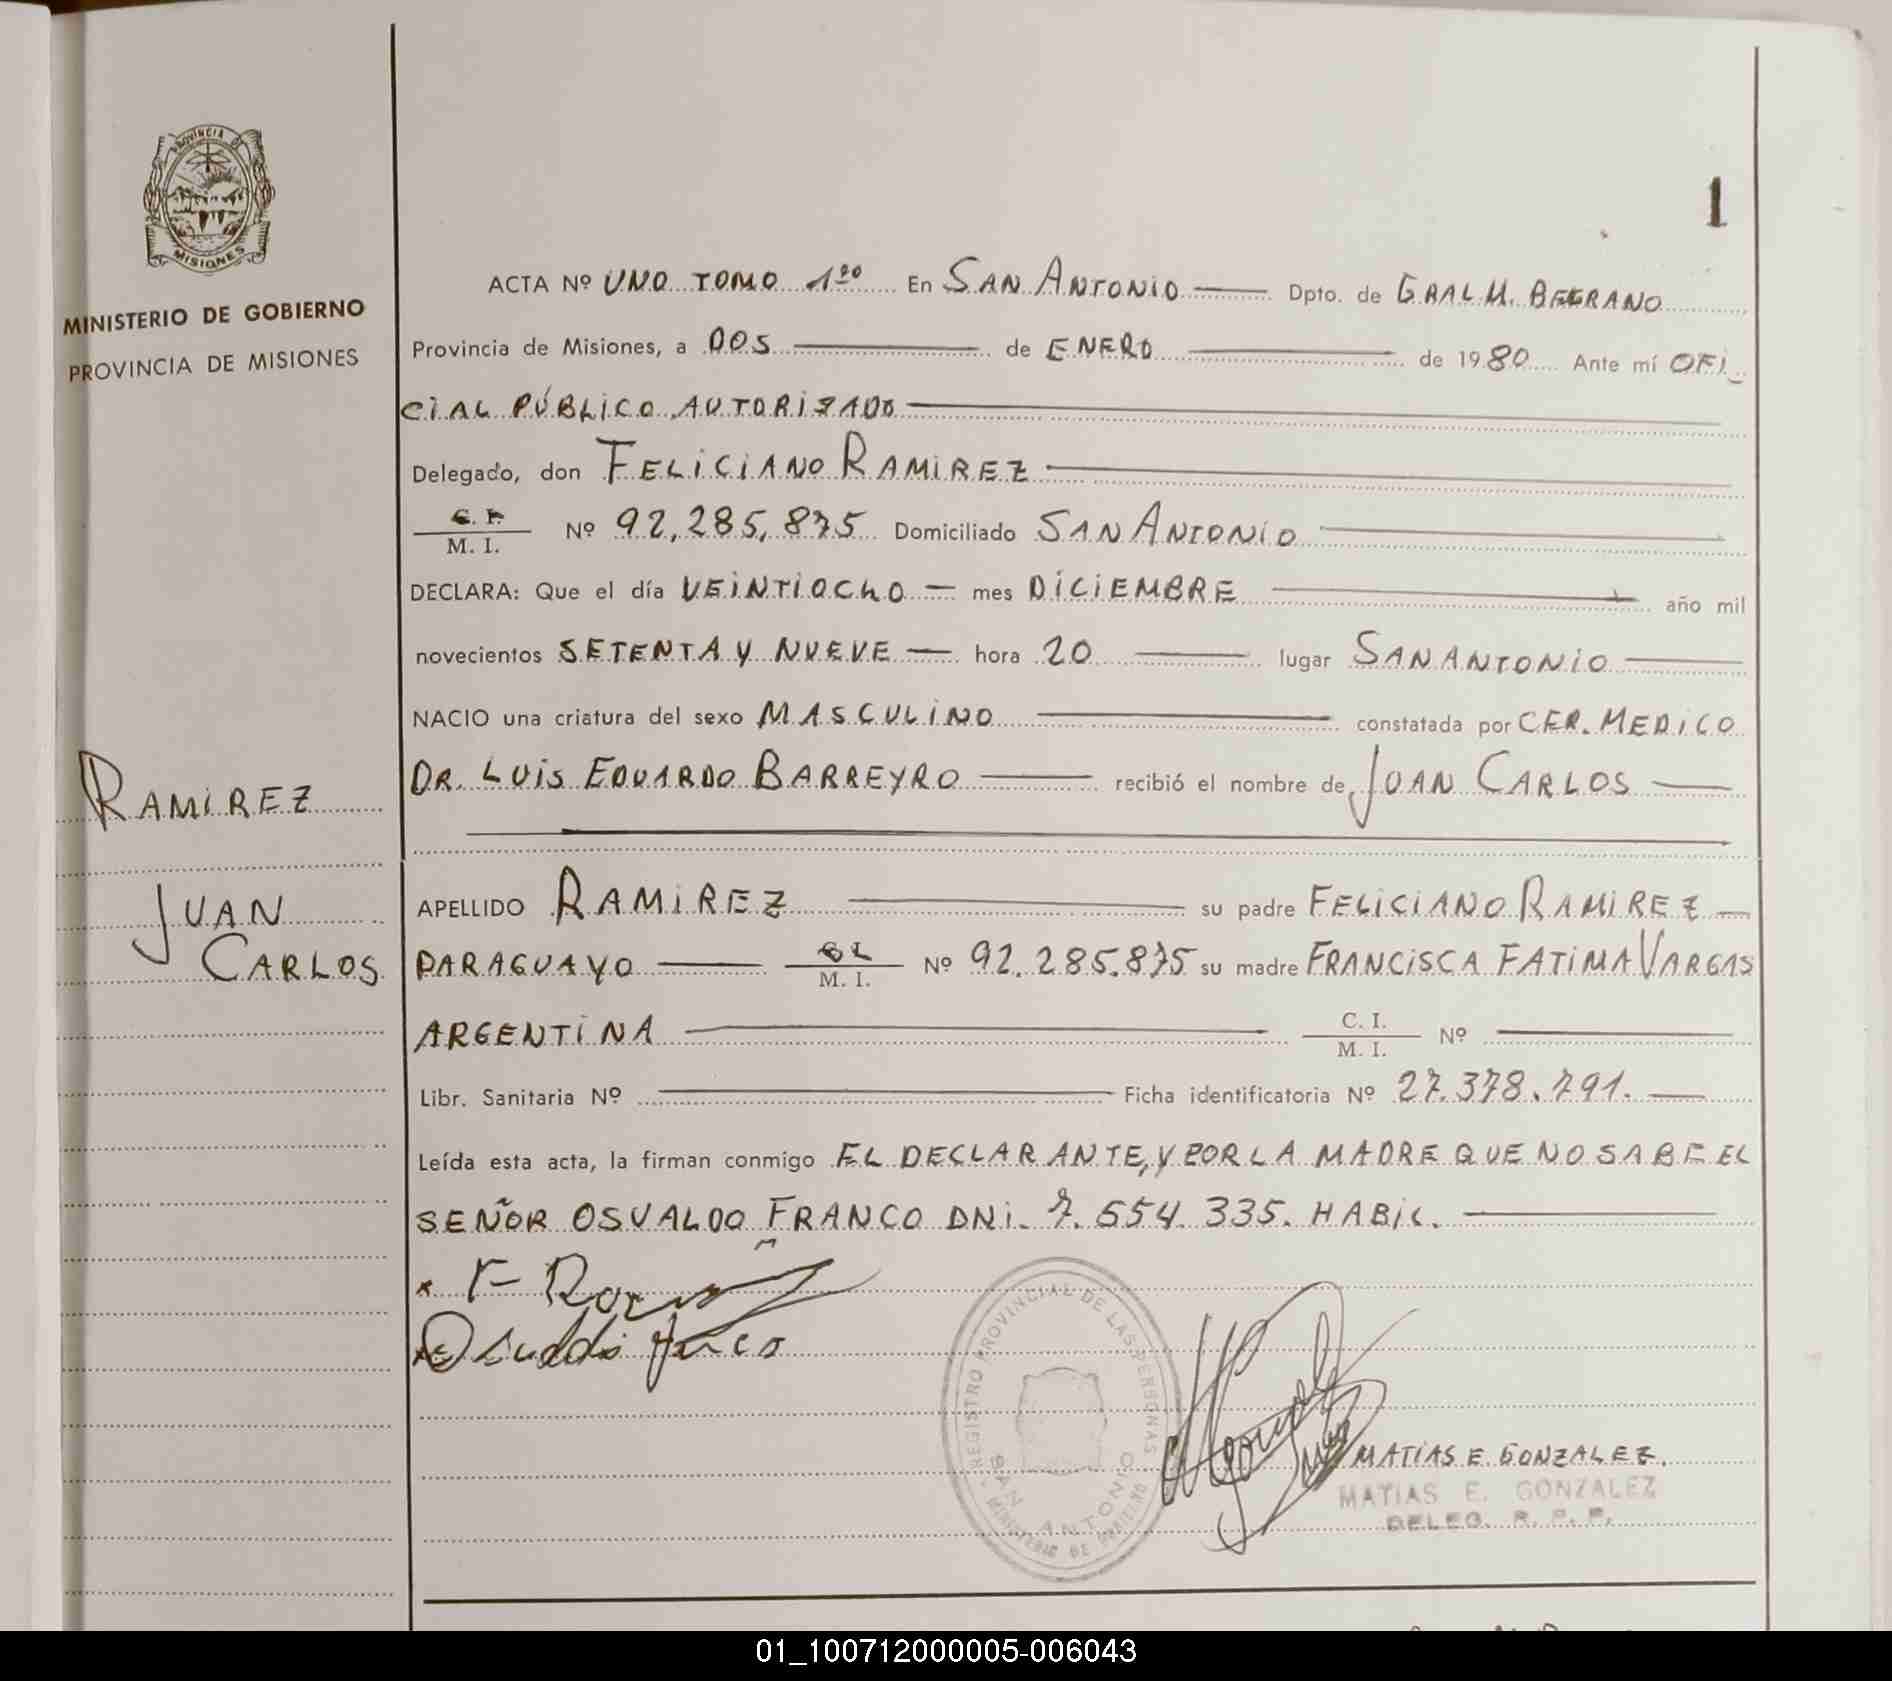 PROVINCIA DE
MISIONES
MINISTERIO DE GOBIERNO
PROVINCIA DE MISIONES
1
ACTA Nº UNO TOMO 1ro En SAN ANTONIO Dpto. de GRAL M. BELGRANO
Provincia de Misiones, a DOS de ENERO de 1980 Ante mí OFI_
CIAL PÚBLICO AUTORIZADO
Delegado, don FELICIANO RAMIREZ
C. I.
M. I. Nº 92.285.875 Domiciliado SAN ANTONIO
DECLARA: Que el día VEINTIOCHO — mes DICIEMBRE año mil
novecientos SETENTA Y NUEVE — hora 20 lugar SAN ANTONIO
NACIO una criatura del sexo MASCULINO constatada por CER. MEDICO
DR. LUIS EDUARDO BARREYRO recibió el nombre de JUAN CARLOS
RAMIREZ
JUAN
CARLOS
APELLIDO RAMIREZ su padre FELICIANO RAMIREZ
PARAGUAYO M. I. Nº 92.285.875 su madre FRANCISCA FATIMA VARGAS
ARGENTINA C. I. M. I. Nº
Libr. Sanitaria Nº Ficha identificatoria Nº 27.378.791.
Leída esta acta, la firman conmigo EL DECLARANTE, Y POR LA MADRE QUE NO SABE EL
SEÑOR OSVALDO FRANCO DNI. 7.554.335. HABIL.
Osvaldo Franco
REGISTRO PROVINCIAL DE LAS PERSONAS
SAN ANTONIO
MINISTERIO DE GOBIERNO
MATIAS E. GONZALEZ.
MATIAS E. GONZALEZ
DELEG. R. P. P.
01_100712000005-006043